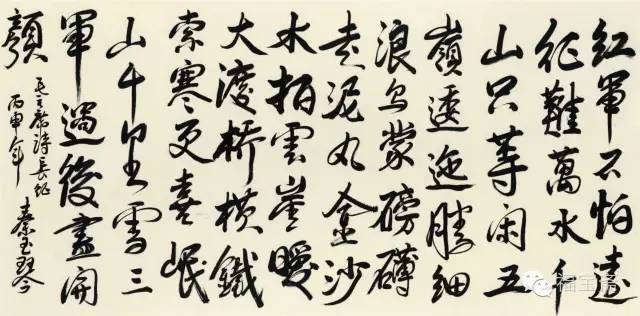 紅軍不怕遠
征難萬水千
山只等闲五
嶺逶迤騰細
浪乌蒙磅礴
走泥丸金沙
水拍雲崖暖
大渡桥横鐵
索寒更喜岷
山千里雪三
軍過後盡開
顏
毛主席詩長征
丙申年
秦玉琴